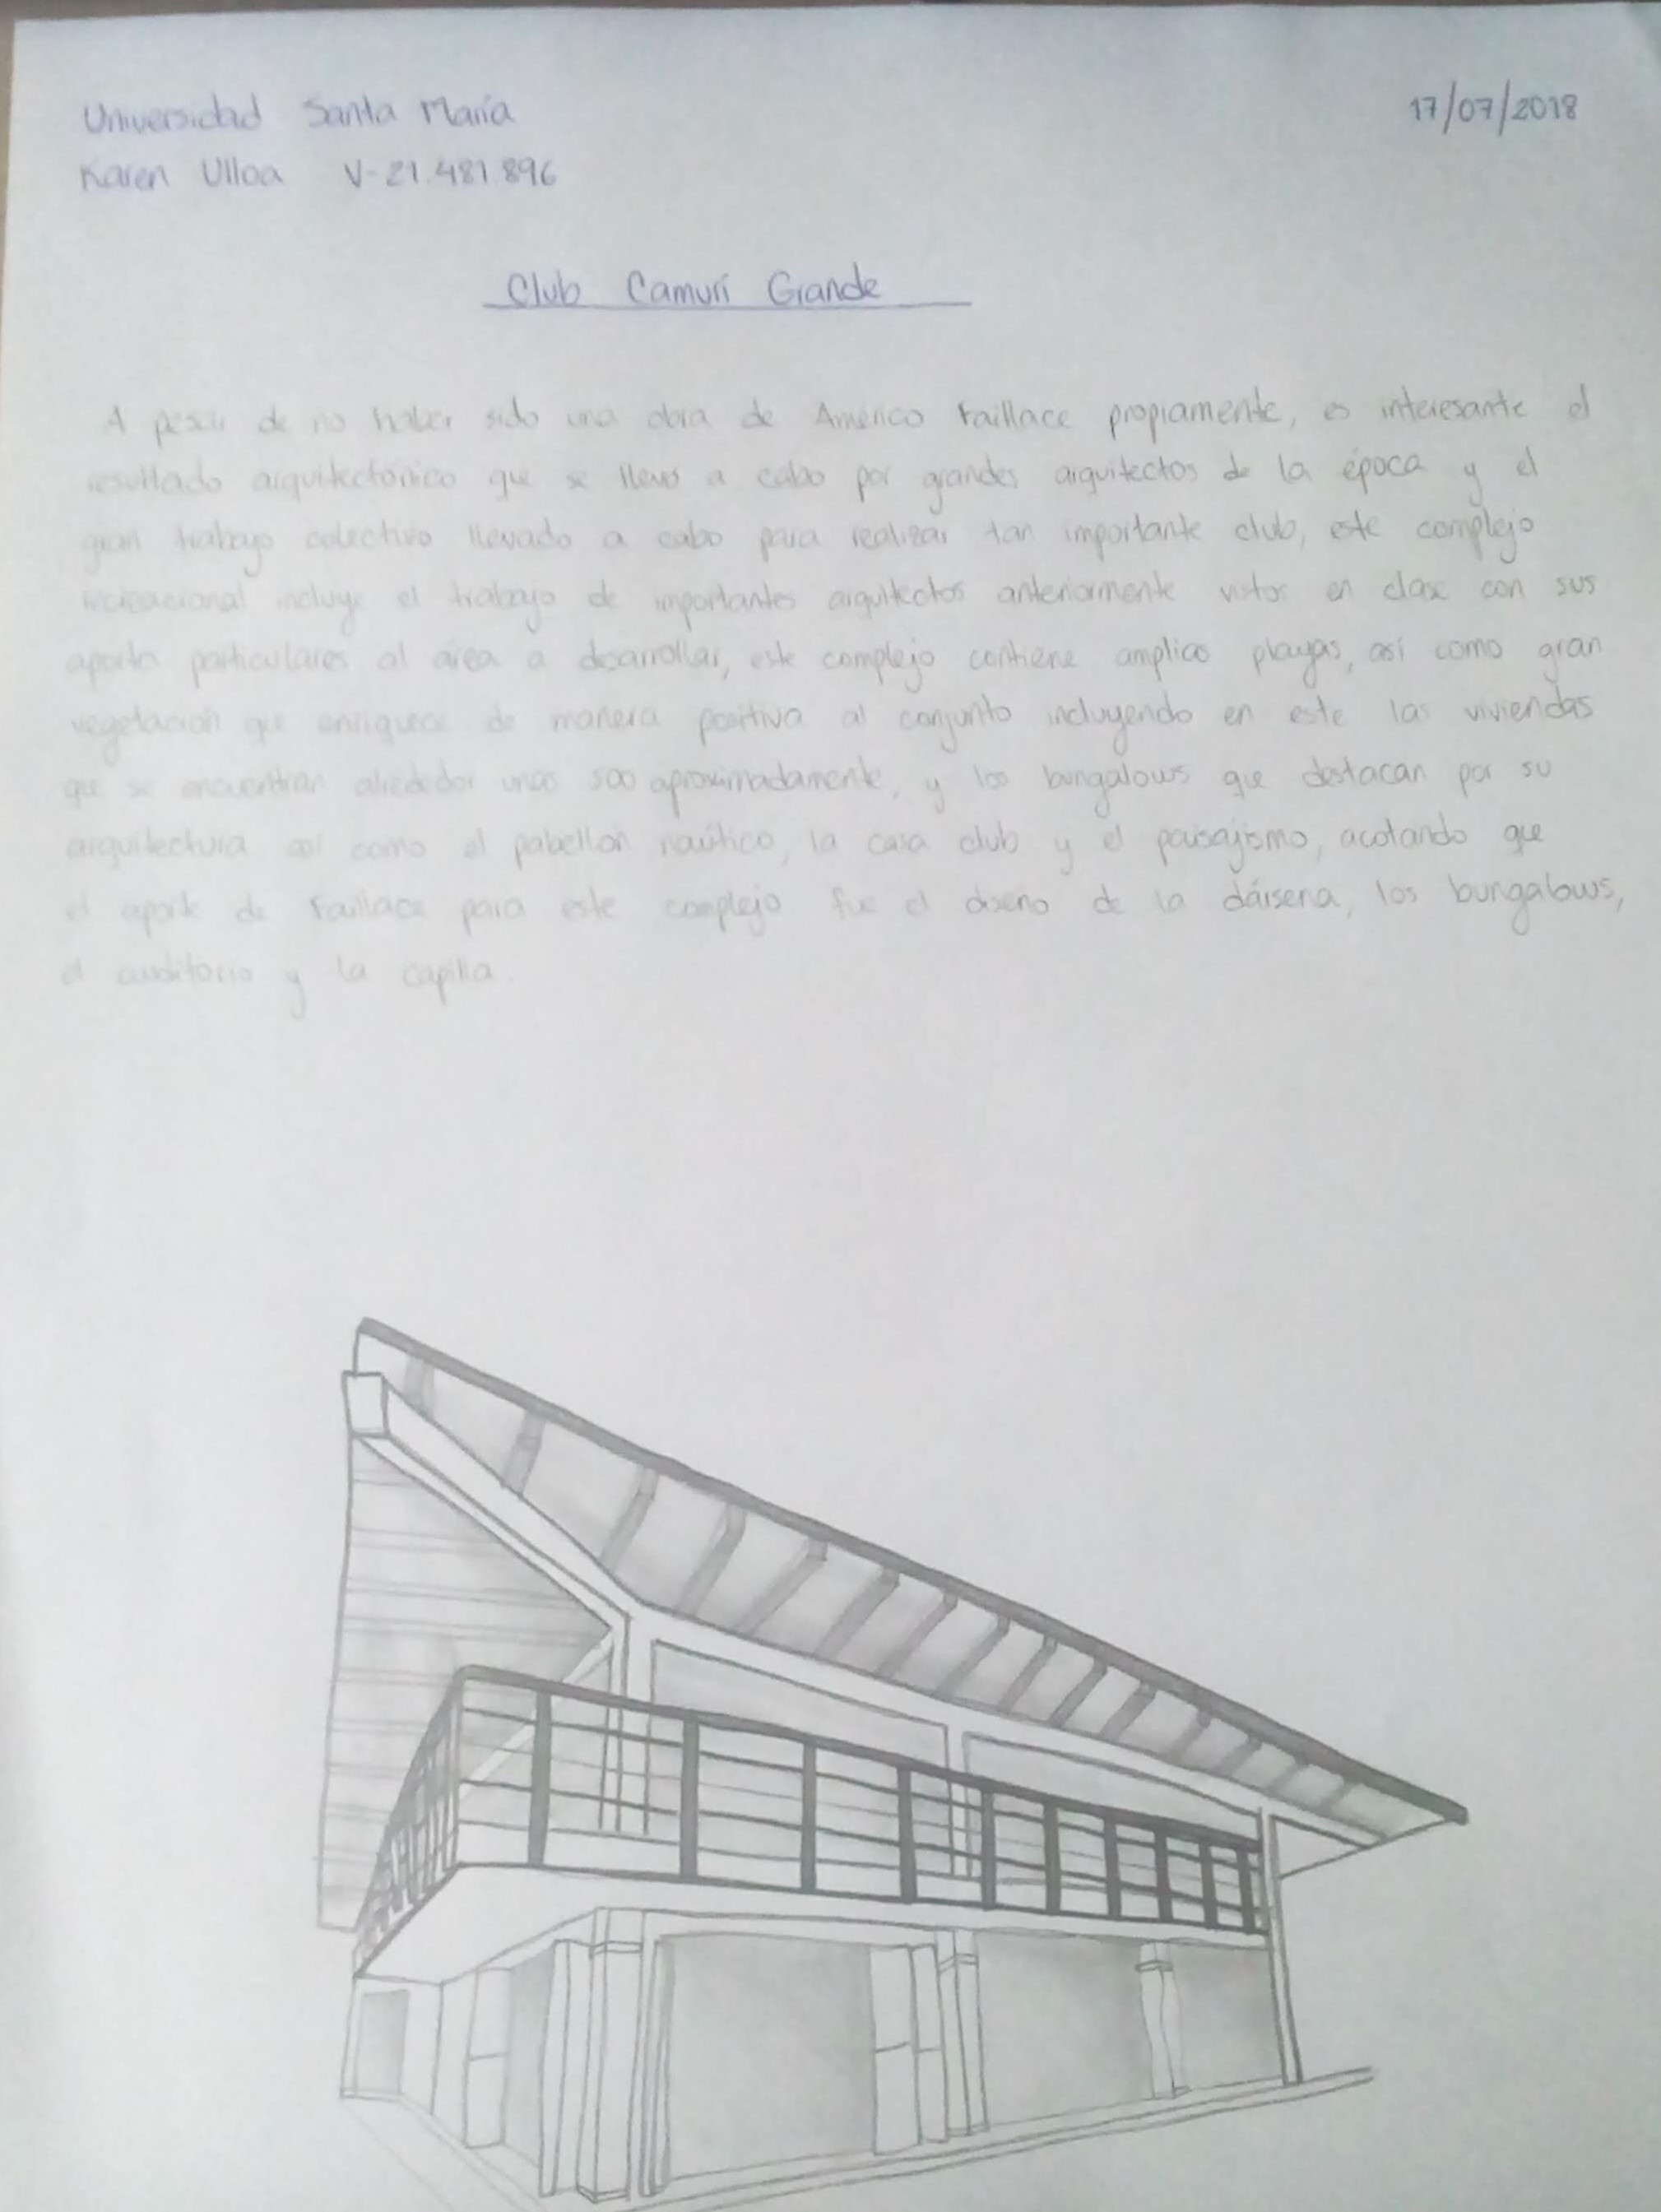 Universidad Santa María 17/07/2018
Karen Ulloa V-21.481.896
Club Camurí Grande
A pesar de no haber sido una obra de Américo Faillace propiamente, es interesante el
resultado arquitectónico que se llevó a cabo por grandes arquitectos de la época y el
gran trabajo colectivo llevado a cabo para realizar tan importante club, este complejo
recreacional incluye el trabajo de importantes arquitectos anteriormente vistos en clase con sus
aportes particulares al área a desarrollar, este complejo contiene amplias playas, así como gran
vegetación que enriquece de manera positiva al conjunto incluyendo en este las viviendas
que se encuentran alrededor unas 500 aproximadamente, y los bungalows que destacan por su
arquitectura así como el pabellón naútico, la casa club y el paisajismo, acotando que
el aporte de Faillace para este complejo fue el diseño de la dáisena, los bungalows,
el auditorio y la capilla.